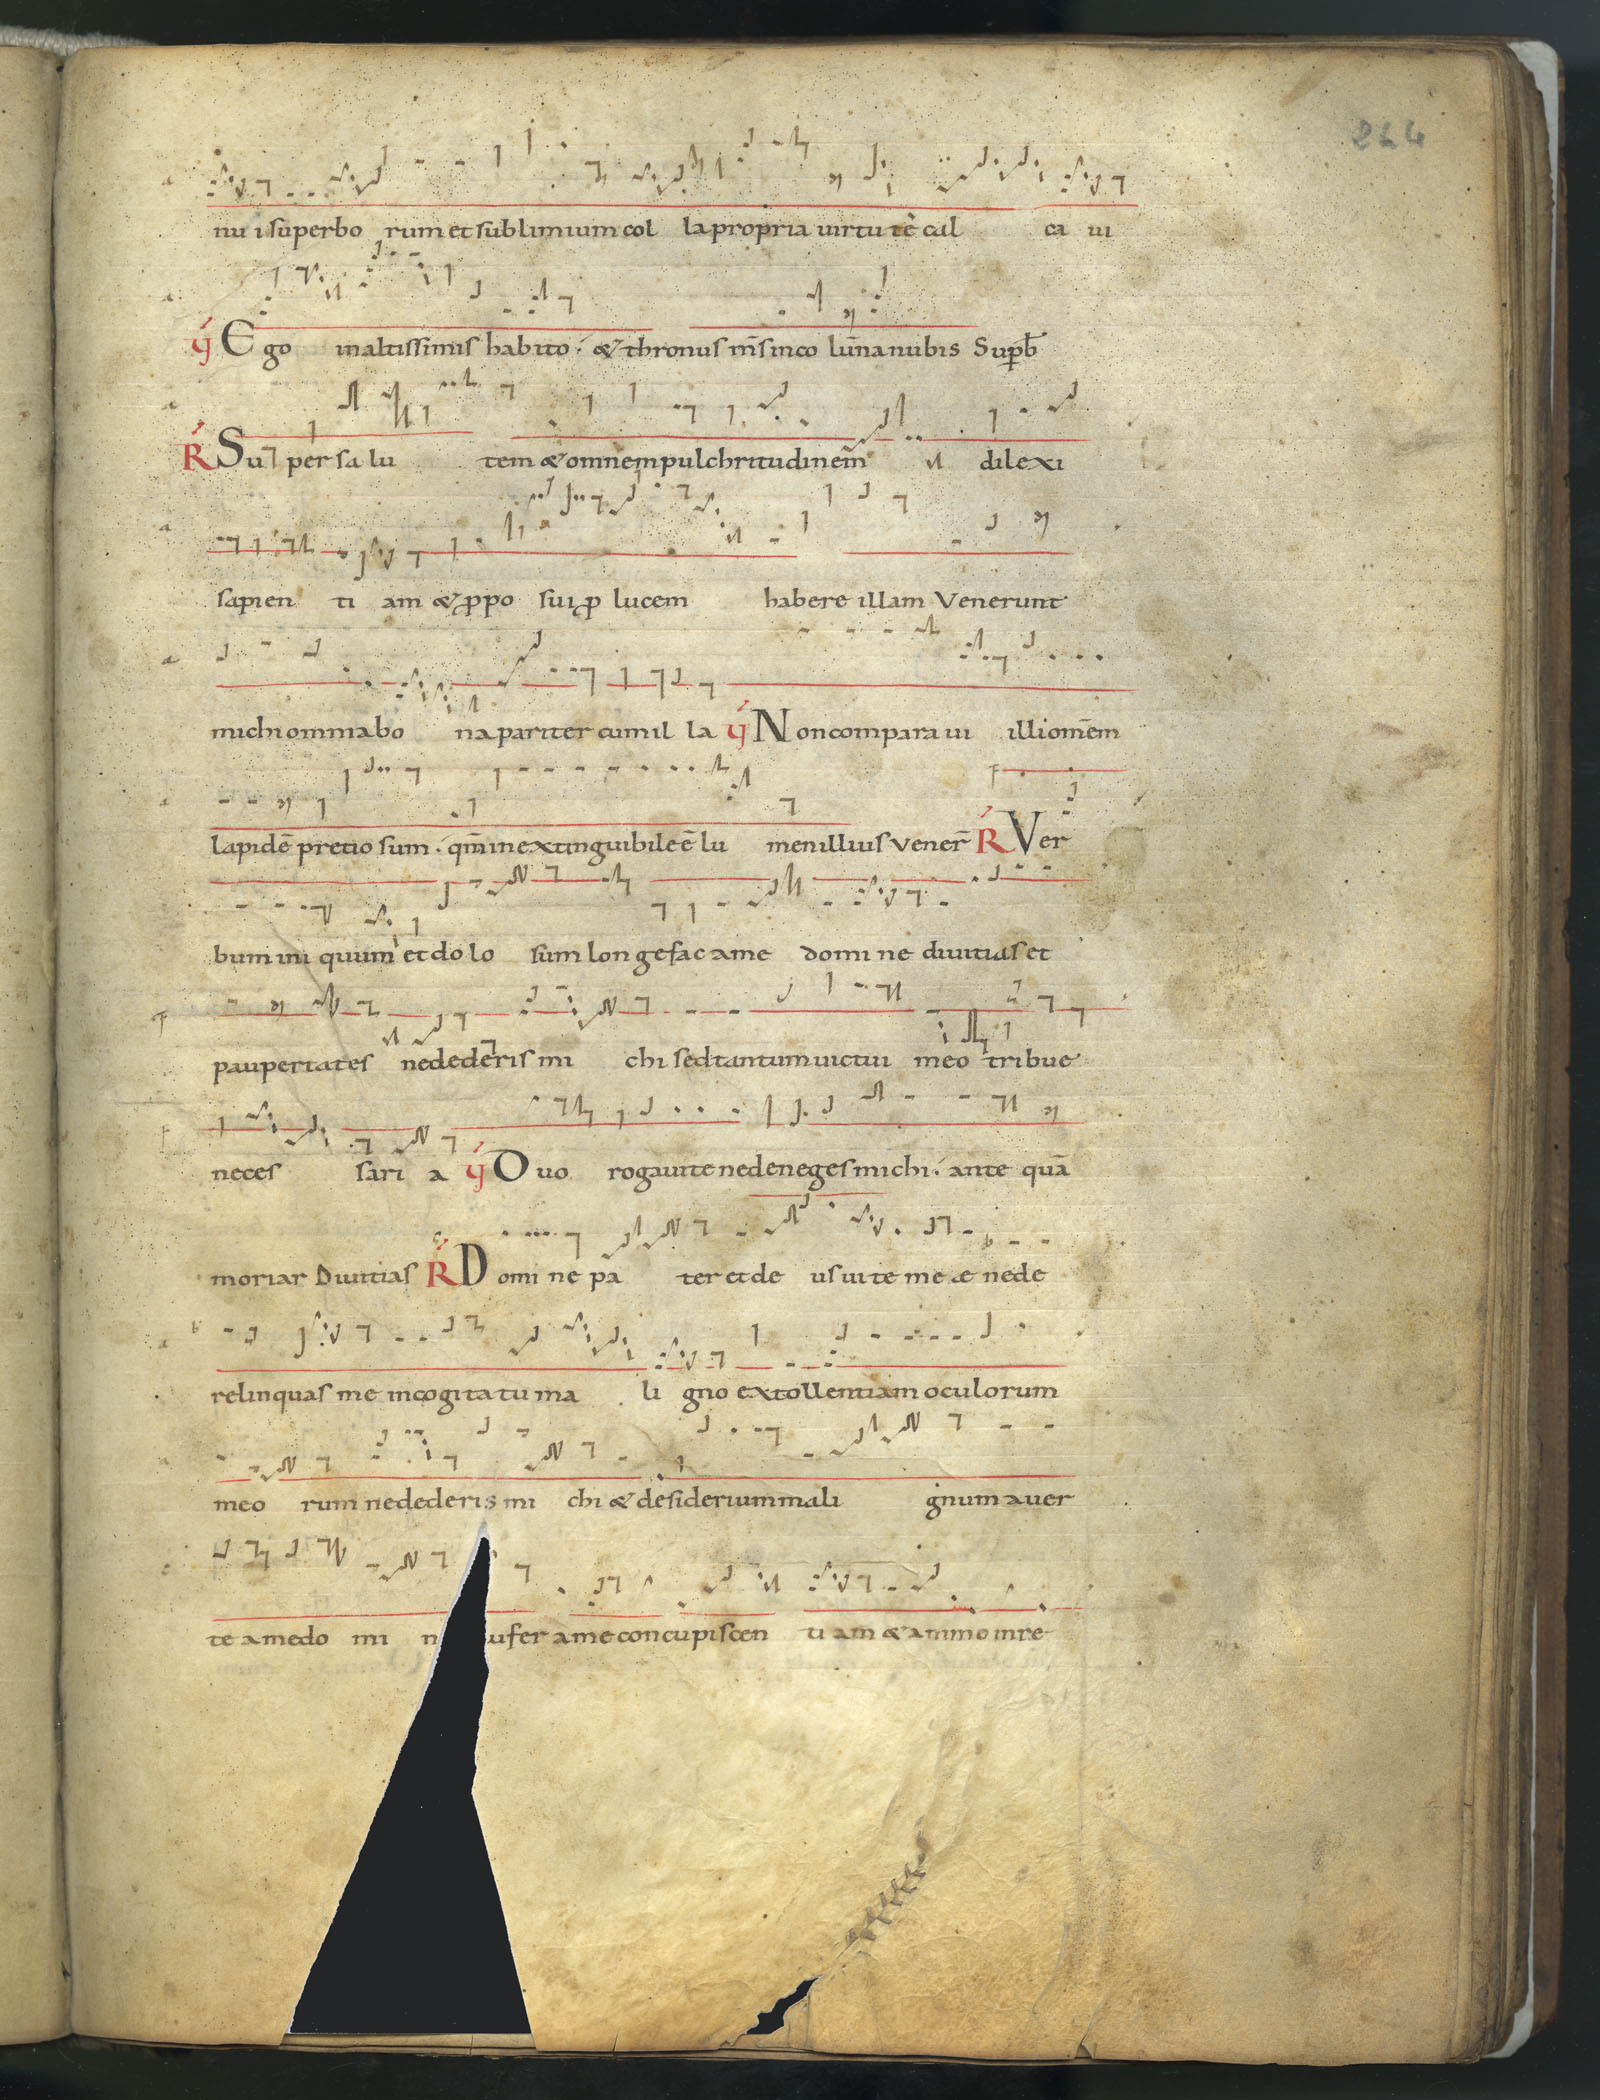 244
nu i superbo rum et sublimium col la propria uirtutē cal ca ui
℣ Ego in altissimis habito & thronus m̄s in colūna nubis Supb̄
℟ Super salu tem & omnem pulchritudinem̄ dilexi
sapien ti am & ꝓpo sui ꝓ lucem habere illam Venerunt
michi omnia bo na pariter cum il la ℣ Non comparaui illi omēm
lapidē pretiosum · qm̄ inextinguibile ē lu men illius vener̄ ℟ Ver
bum ini quum et dolo sum longe fac a me domi ne diuitias et
paupertates ne dederis mi chi sed tantum uictui meo tribue
neces sari a ℣ Duo rogaui te ne deneges michi · ante quā
moriar Diuitias ℟ Domi ne pa ter et de us uite meæ ne de
relinquas me in cogitatu ma li gno extollentiam oculorum
meo rum ne dederis mi chi & desiderium mali gnum auer
te a me do mi n ufer a me concupiscen ti am & animo inre